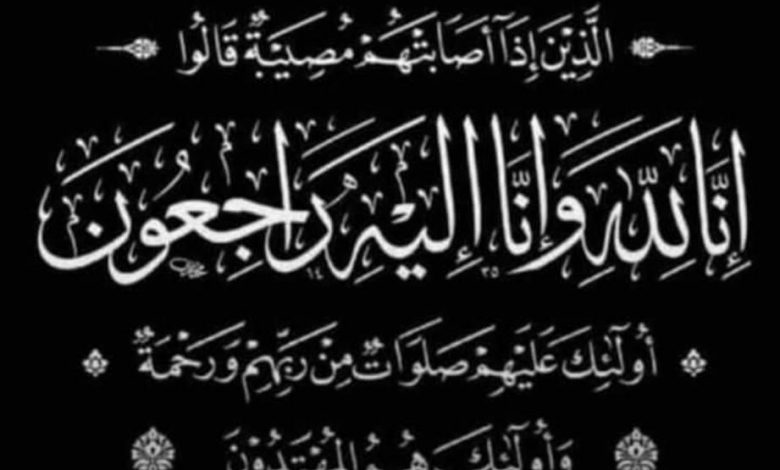 الَّذِيْنَ إِذَا أَصَابَتْهُمْ مُصِيْبَةٌ قَالُوا
إِنَّا لِلّٰهِ وَإِنَّا إِلَيْهِ رَاجِعُونَ
أُولَٰئِكَ عَلَيْهِمْ صَلَوَاتٌ مِنْ رَبِّهِمْ وَرَحْمَةٌ
وَأُولَٰئِكَ هُمُ الْمُهْتَدُوْنَ